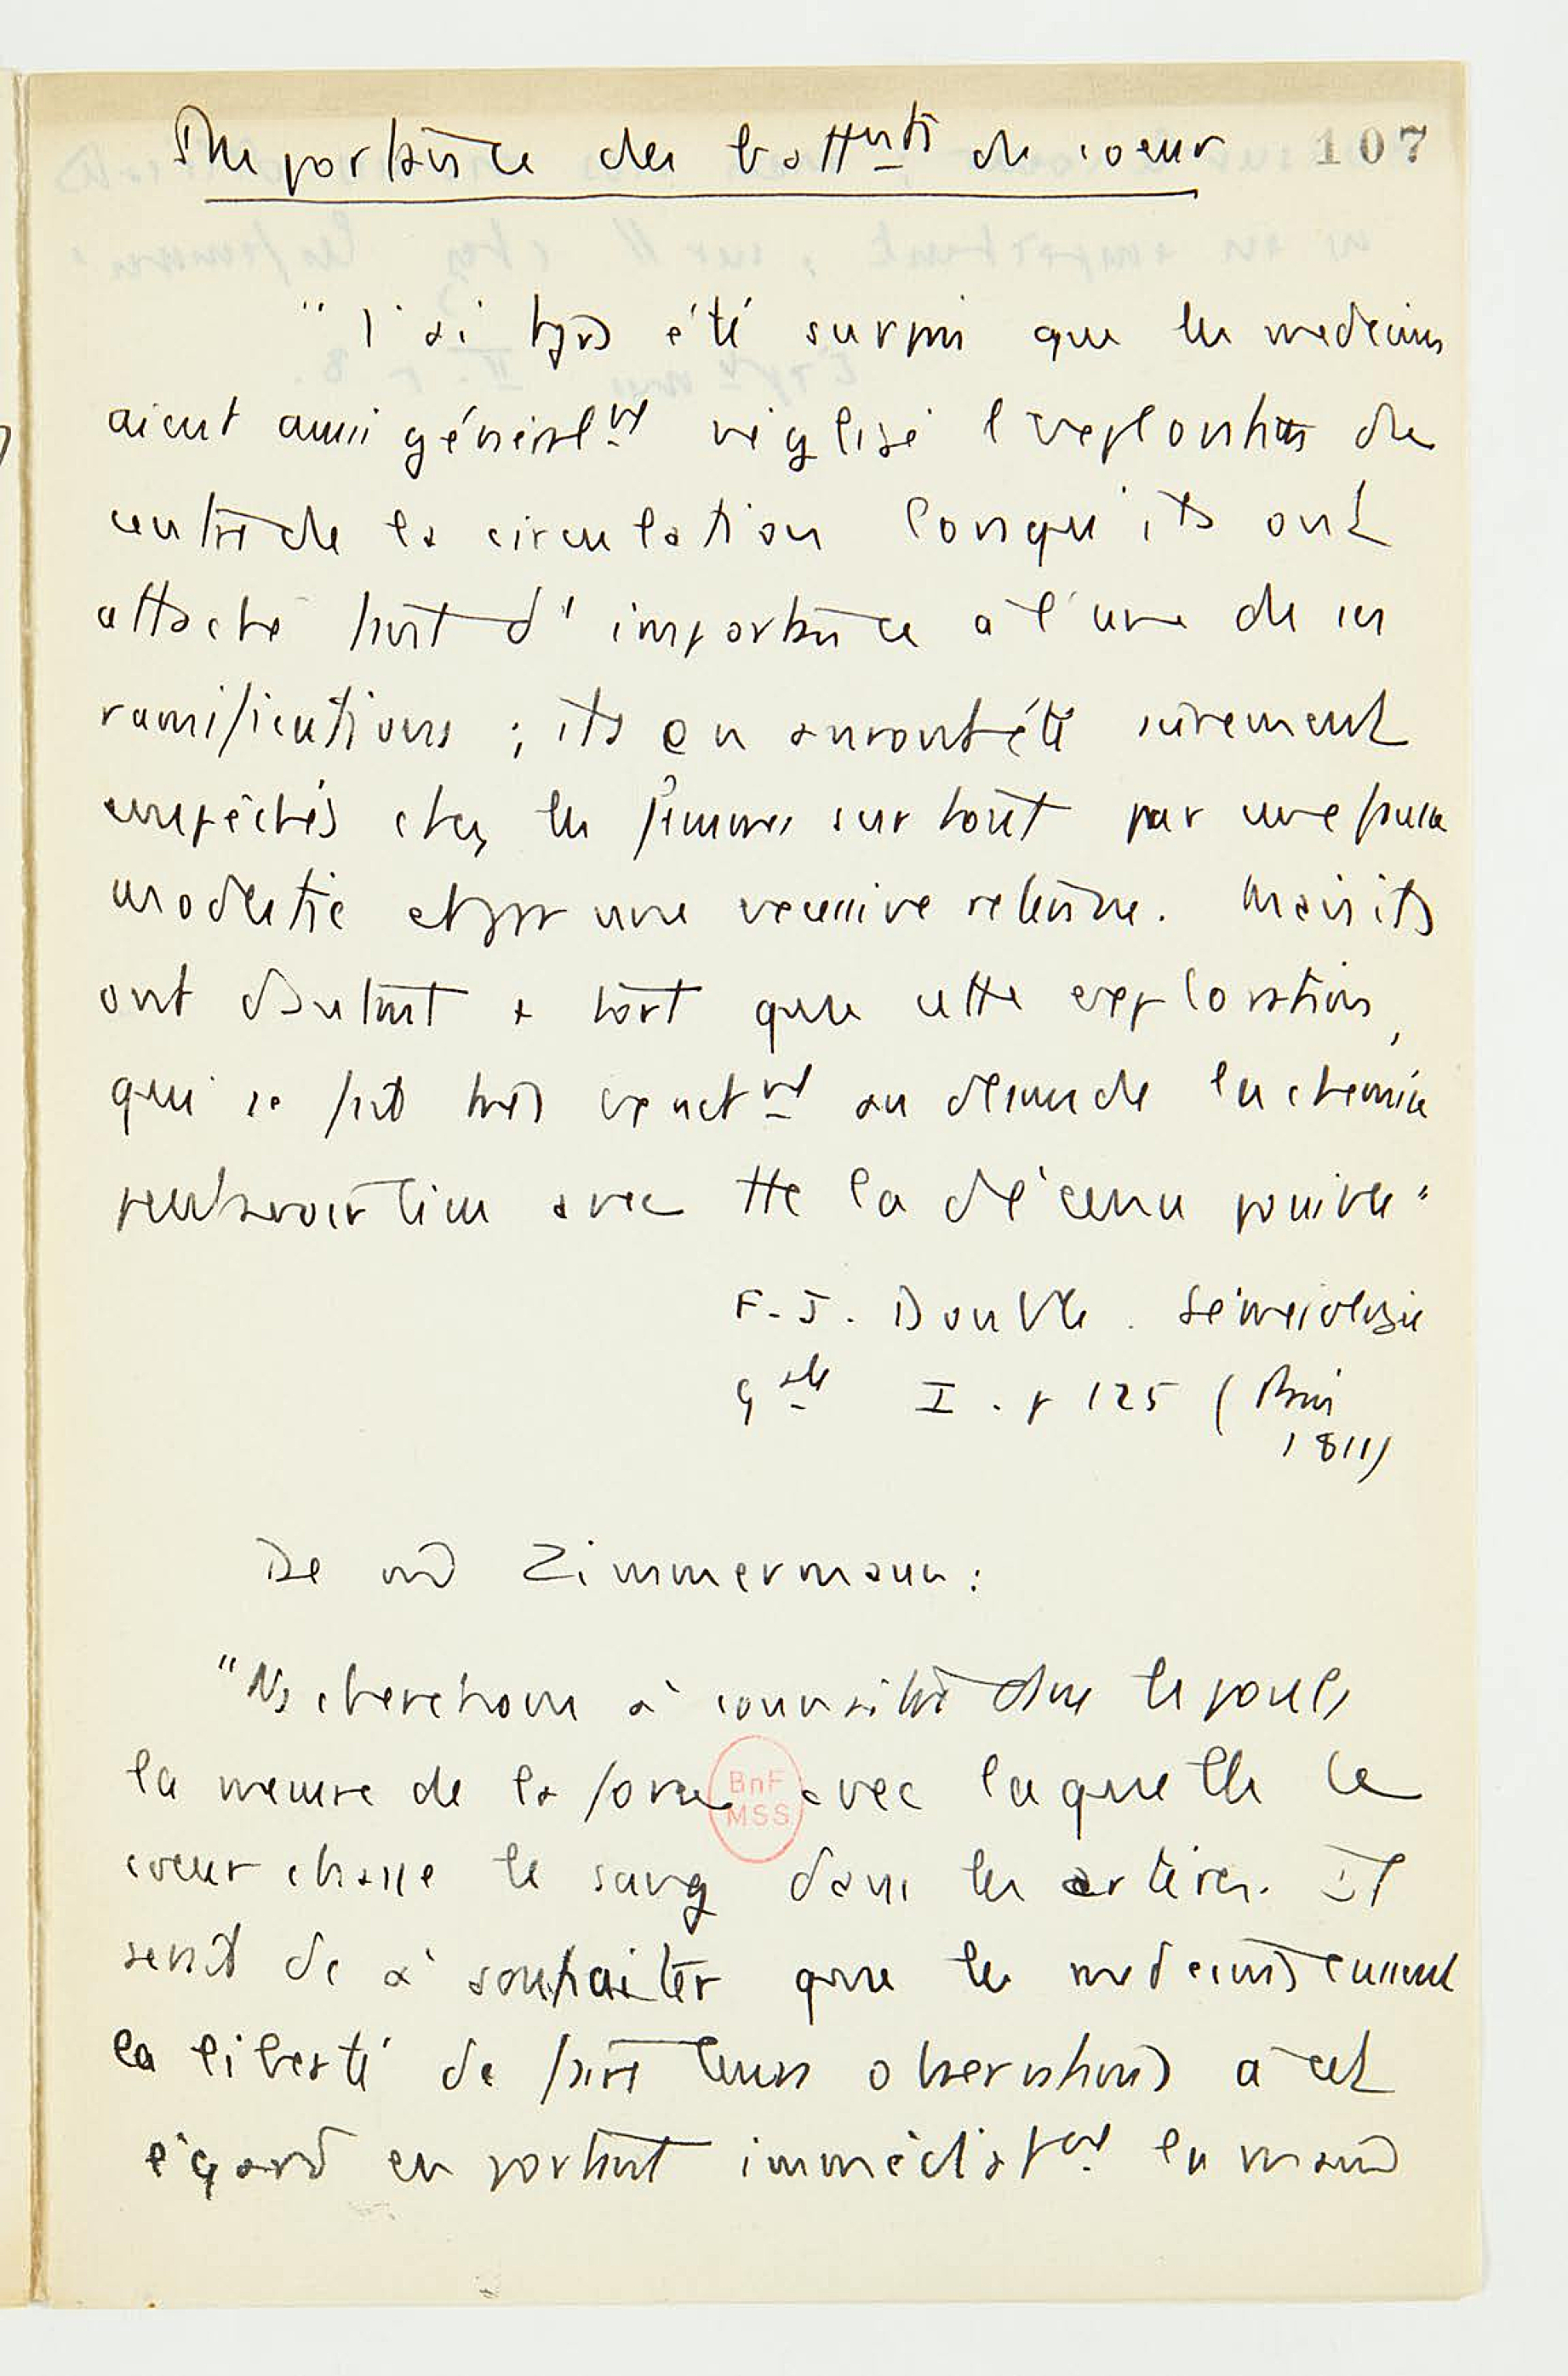 Importance des batt^ents de coeur 107
" J'ai tjrs été surpris que les medecins
aient aussi général^nt négligé l'exploration du
centre de la circulation lorsqu'ils ont
attaché tant d'importance à l'une de ses
ramifications ; ils en auront été sûrement
empêchés chez les femmes surtout par une fausse
modestie et par une excessive retenue. Mais ils
ont d'autant + tort que cette exploration,
qui se fait très exact^nt au dessus de la chemise
peut avoir lieu avec tte la décence possible "
F-J. Double. Séméiologie
g^ale I. p 125 (Paris
1811)
De m̂ Zimmermann :
"Ns cherchons à connaître dans le pouls
la mesure de la force avec laquelle le
BnF
MSS
coeur chasse le sang dans les artères. Il
serait de à souhaiter que les medecins eussent
la liberté de faire leurs observations à cet
égard en portant immédiat^ent la main